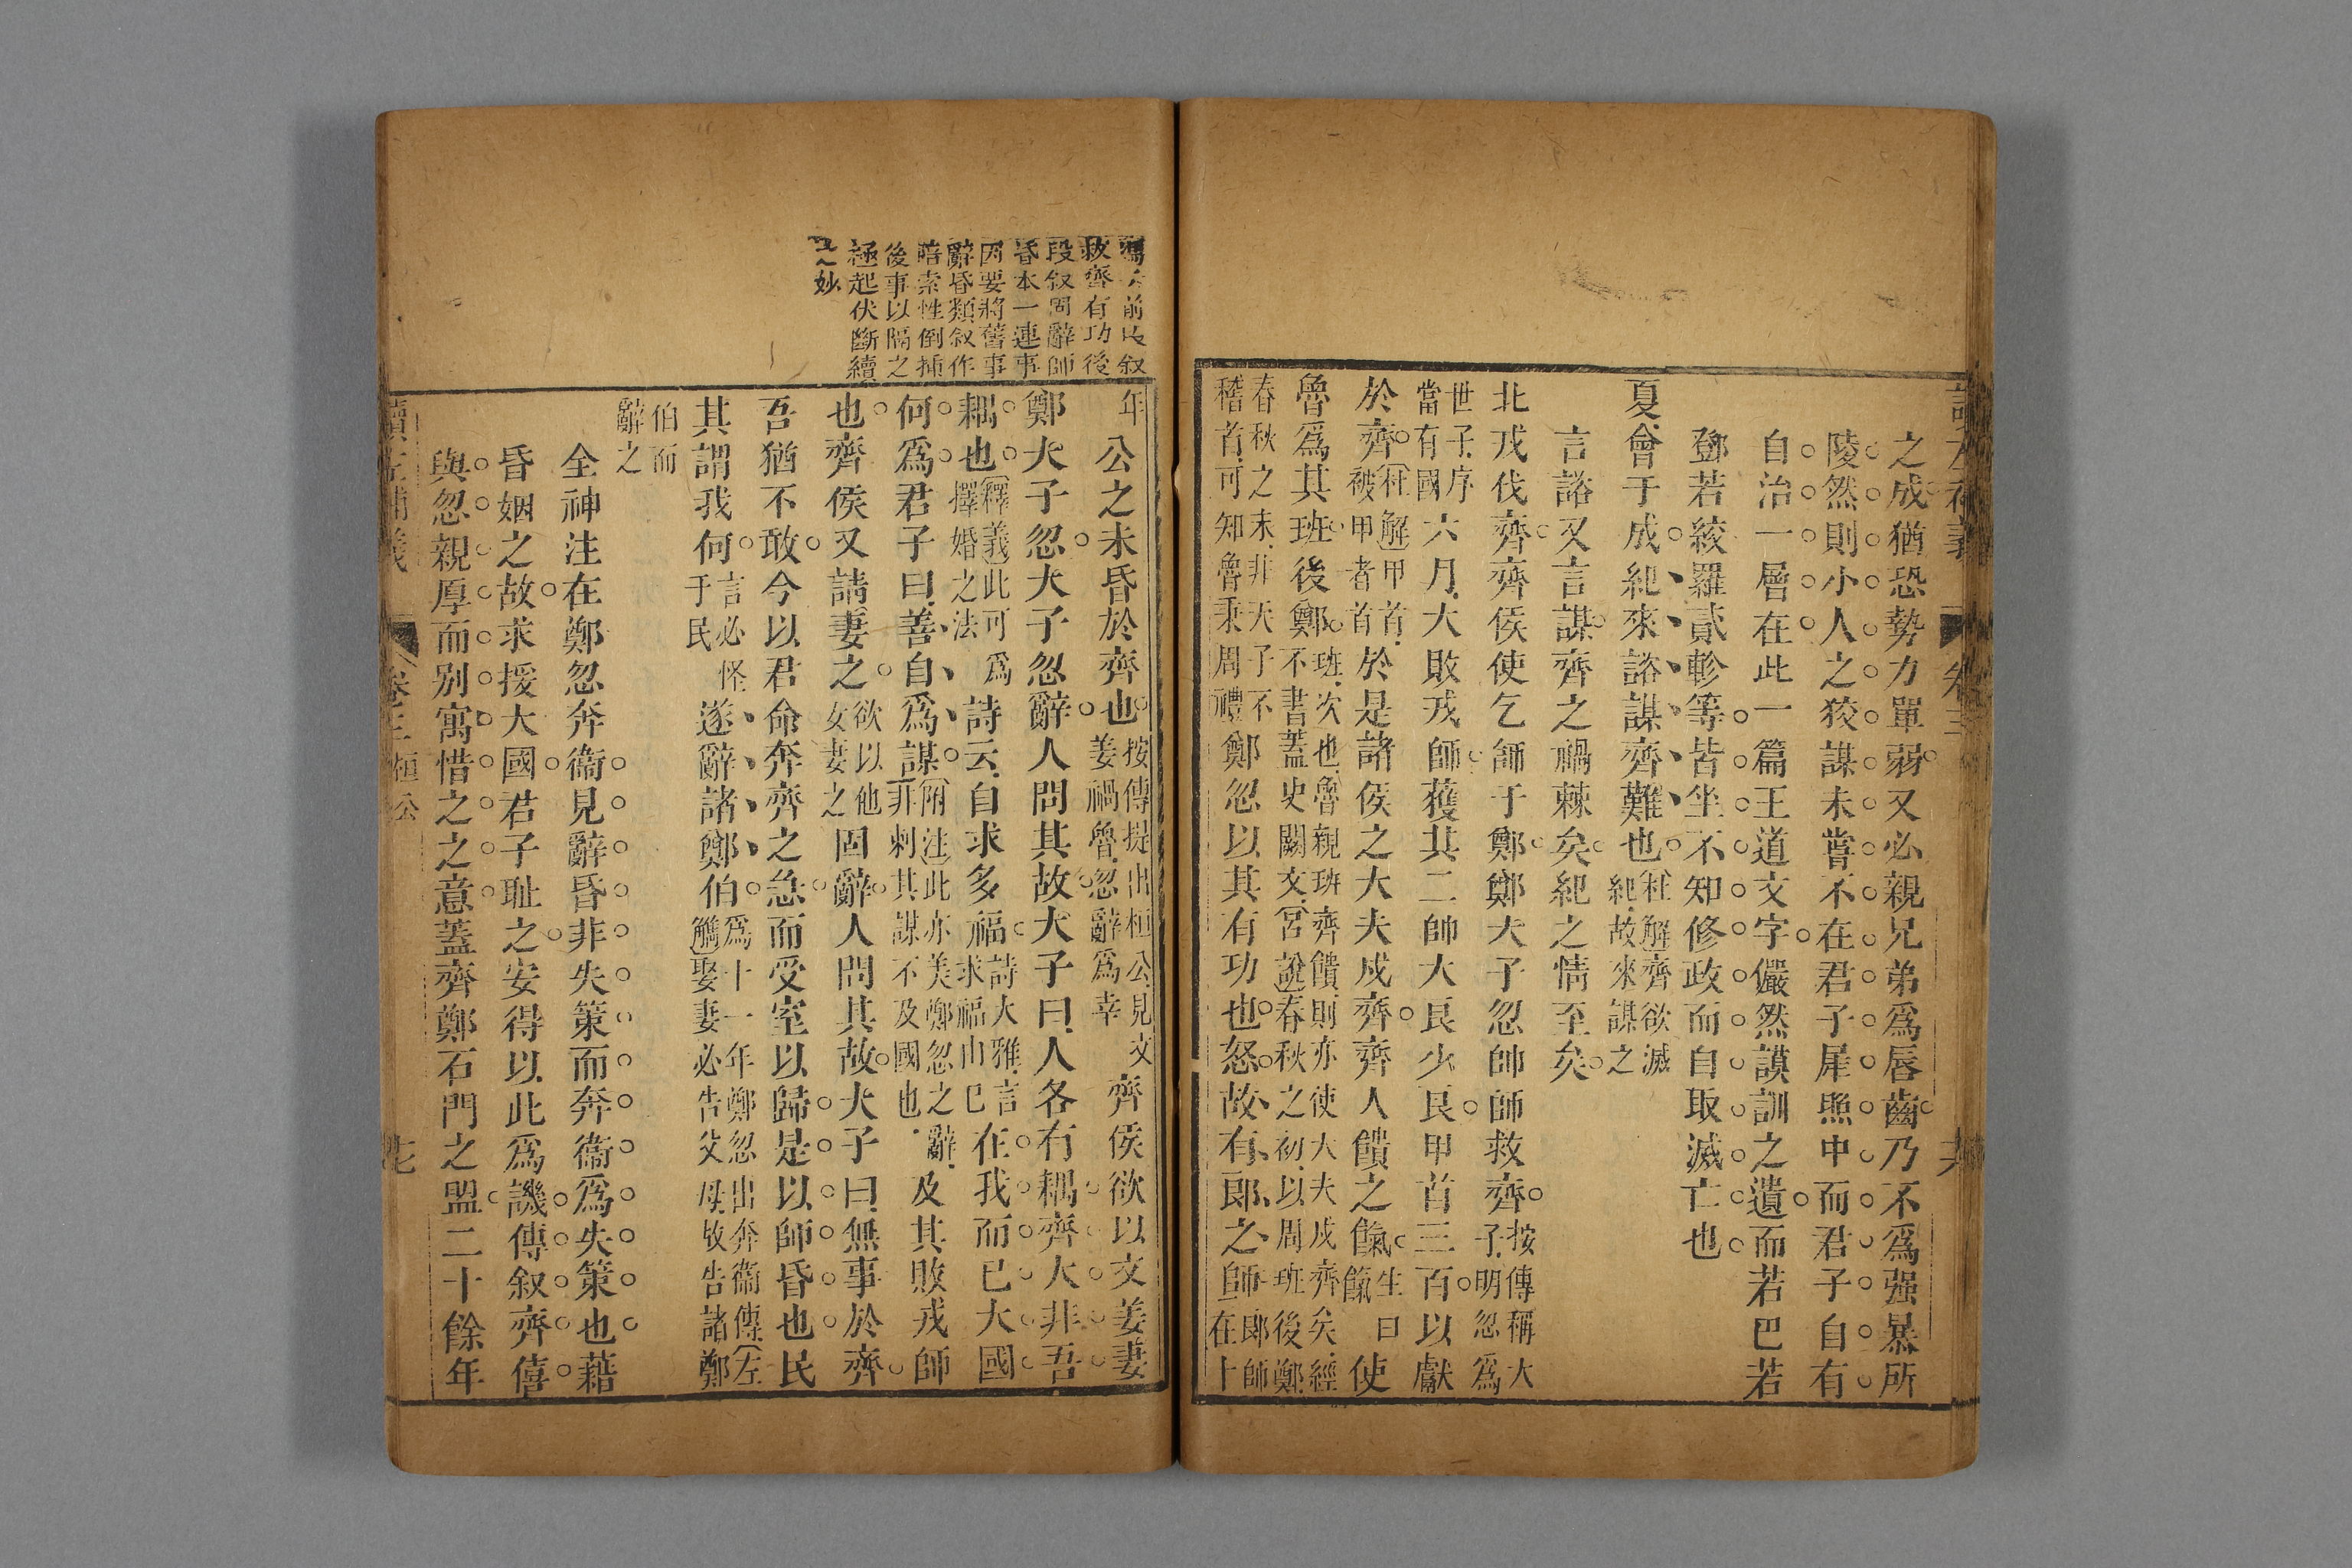 之成猶恐勢力單弱又必親兄弟爲唇齒乃不爲强暴所
陵然則小人之狡謀未嘗不在君子犀照中而君子自有
自治一層在此一篇王道文字儼然謨訓之遺而若巴若
鄧若絞羅貳軫等皆坐不知修政而自取滅亡也
夏會于成紀來諮謀齊難也杜解齊欲滅紀故來謀之
言諮又言謀齊之禍棘矣紀之情至矣
北戎伐齊齊侯使乞師于鄭鄭大子忽帥師救齊按傳稱大子明忽爲
世子序當有國六月大敗戎師獲其二帥大良少良甲首三百以獻
於齊杜解甲首被甲者首於是諸侯之大夫戍齊齊人饋之餼生曰餼使
魯爲其班後鄭班次也魯親班齊饋則亦使大夫戍齊矣經不書蓋史闕文宮說春秋之初以周班後鄭
春秋之末非天子不稽首可知魯秉周禮鄭忽以其有功也怒故有郎之師郎師在十
年公之未昏於齊也按傳提出桓公見文姜禍魯忽辭爲幸齊侯欲以文姜妻
鄭大子忽大子忽辭人問其故大子曰人各有耦齊大非吾
耦也釋義此可爲擇婚之法詩云自求多福詩大雅言求福由已在我而已大國
何爲君子曰善自爲謀附注此亦美鄭忽之辭非刺其謀不及國也及其敗戎師
也齊侯又請妻之欲以他女妻之固辭人問其故大子曰無事於齊
吾猶不敢今以君命奔齊之急而受室以歸是以師昏也民
其謂我何言必怪于民遂辭諸鄭伯爲十一年鄭忽出奔衞傳左觿娶妻必告父母故告諸鄭
伯而辭之
全神注在鄭忽奔衞見辭昏非失策而奔衞爲失策也藉
昏姻之故求援大國君子耻之安得以此爲譏傳叙齊僖
與忽親厚而别寓惜之之意蓋齊鄭石門之盟二十餘年
前段叙
救齊有功後
段叙固辭師
昏本一連事
因要將舊事
辭昏類叙作
暗索性倒揷
後事以隔之
極起伏斷續
之妙
讀左補義
卷三
桓公